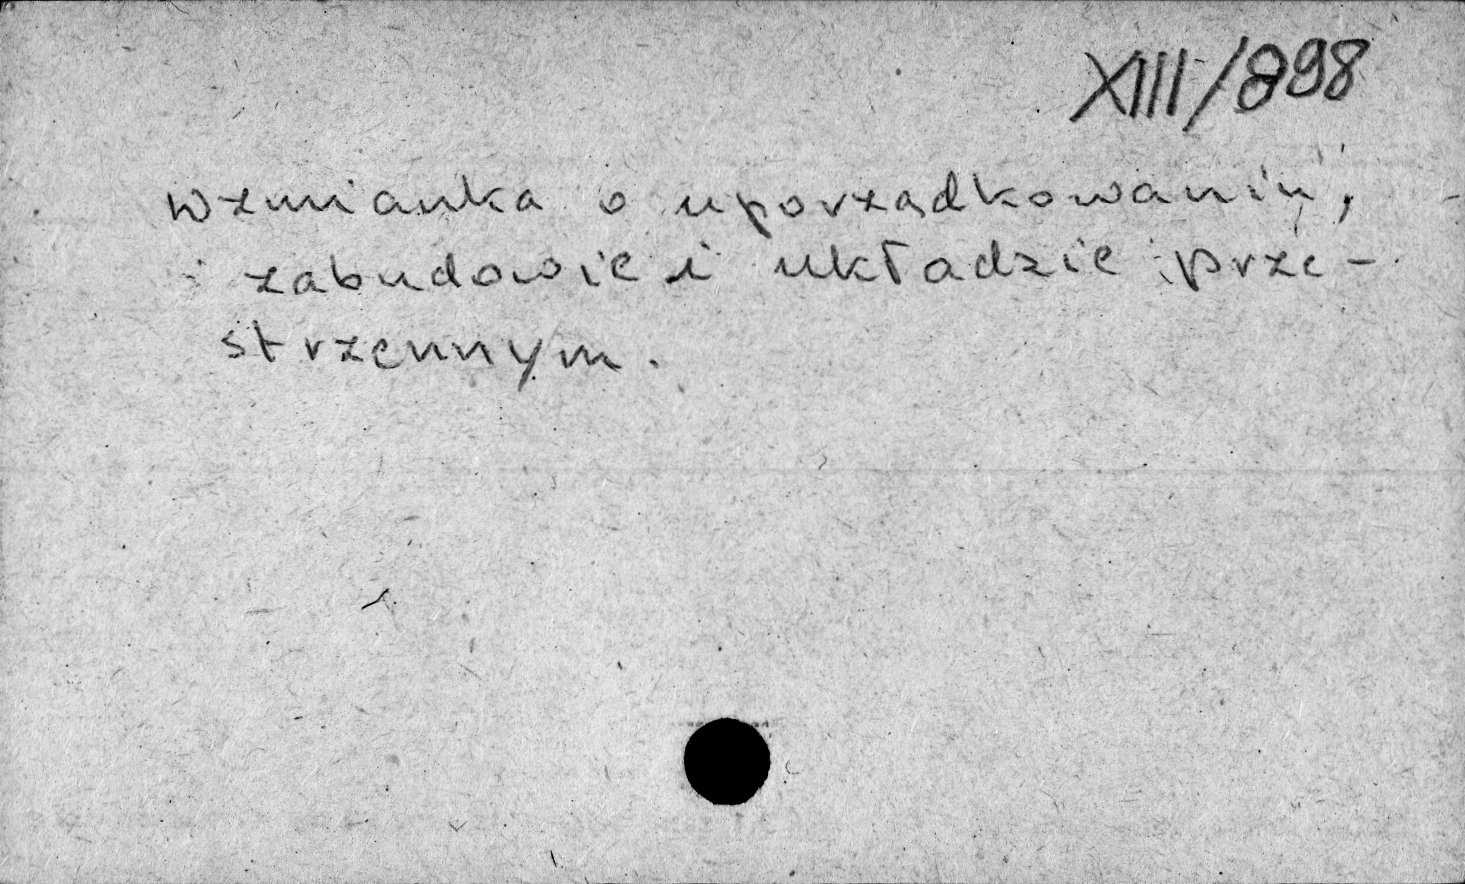 XIII/898
wzmianka o uporządkowaniu,
zabudowie i układzie prze-
strzennym.